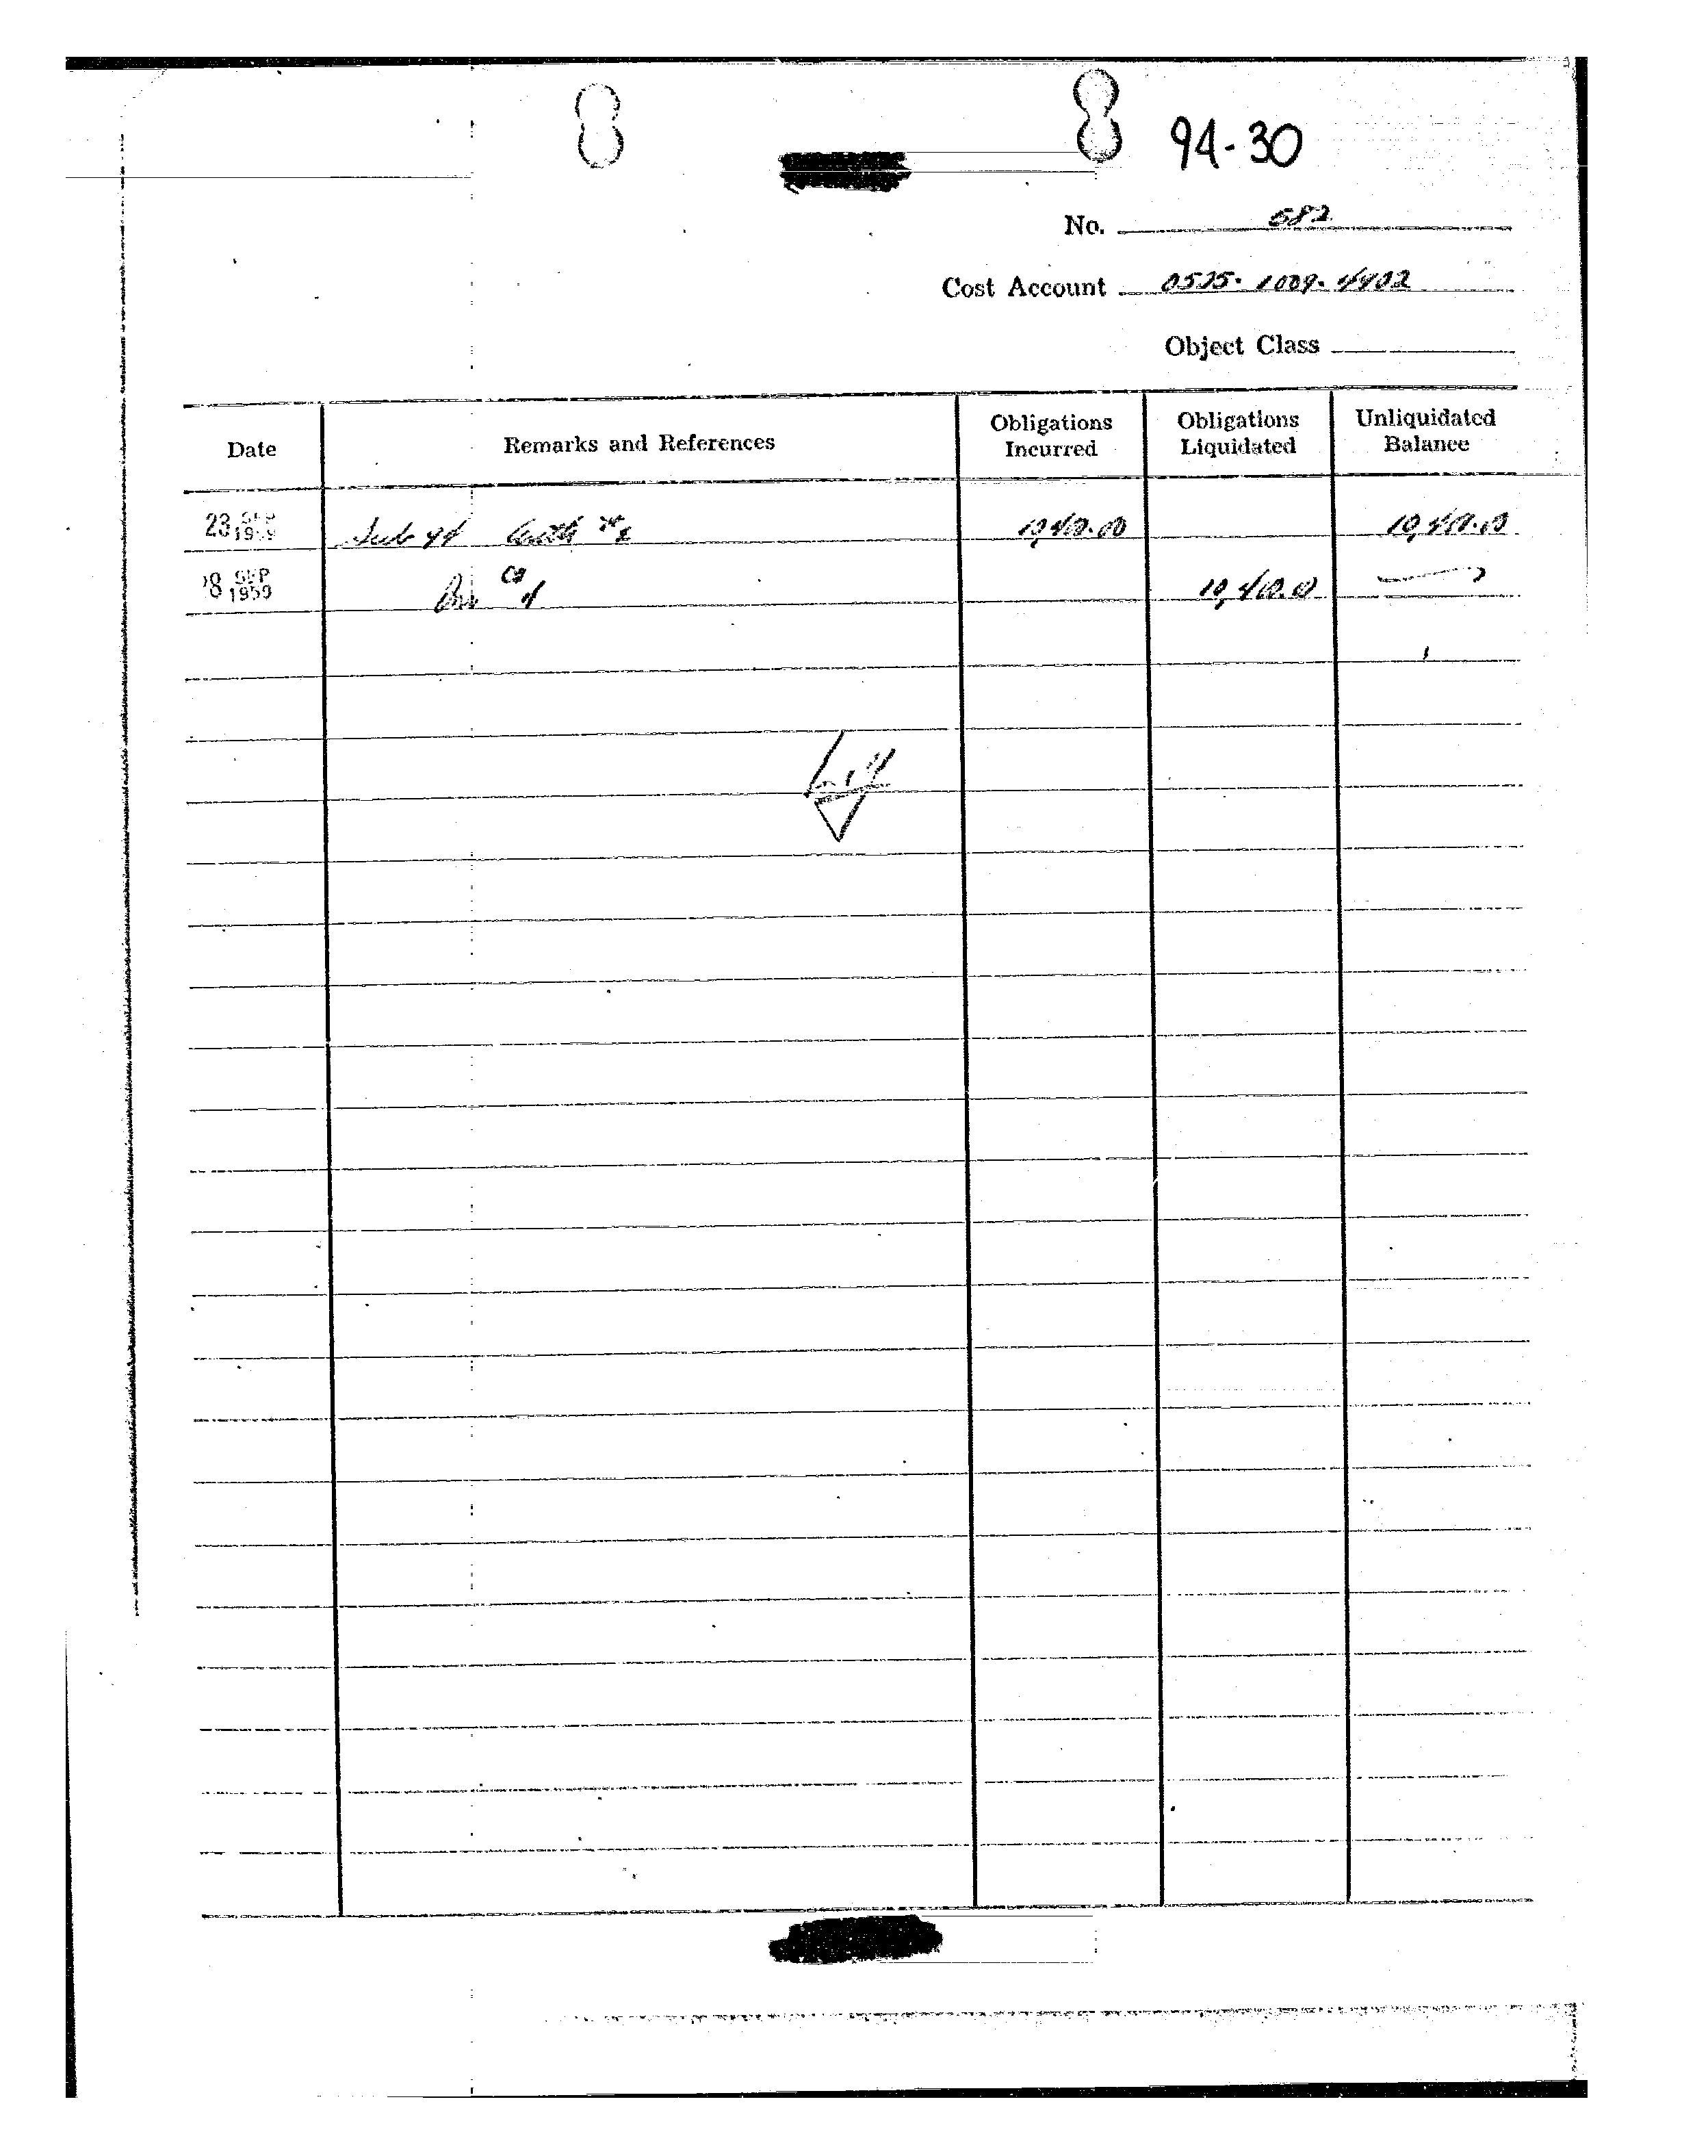 94-30
No. 582
Cost Account 0525-1009-4402
Object Class
Date Remarks and References Obligations Incurred Obligations Liquidated Unliquidated Balance
23 SEP 1959 Sub 94 10,410.00 10,410.00
SEP 1959 Inv 10,410.00